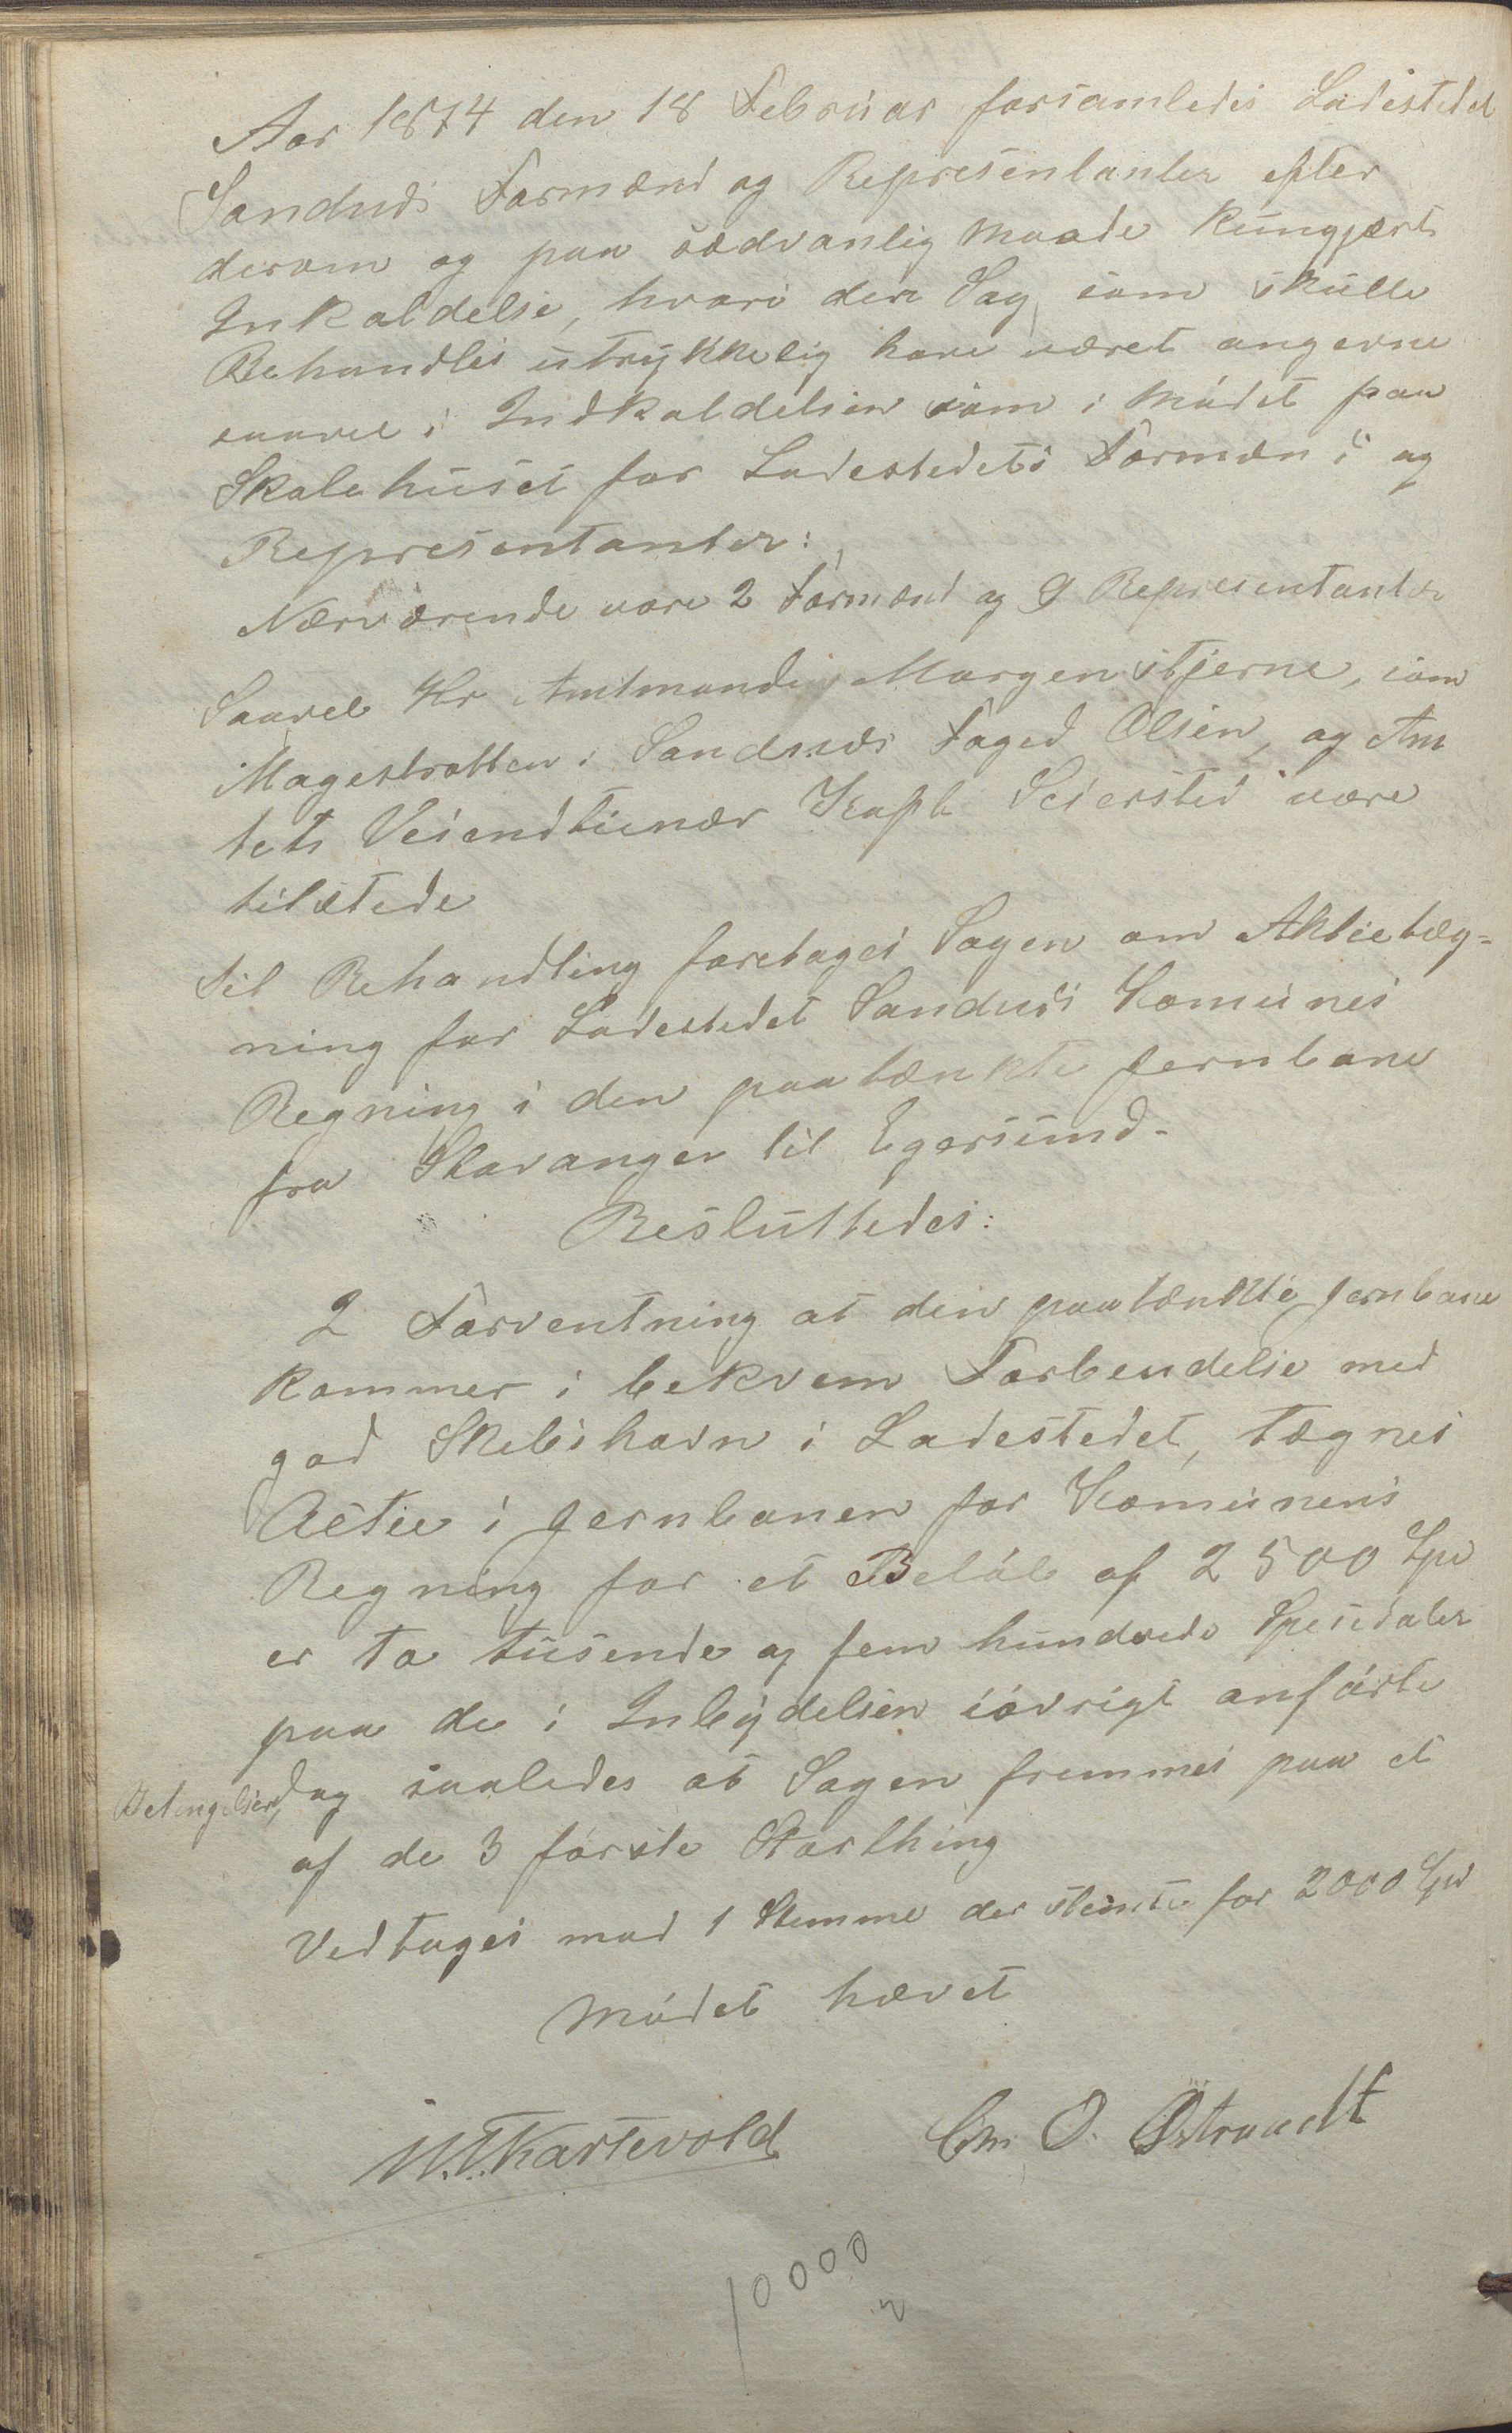 Aar 1874 den 18 Februar forsamledes Ladestedet
Sandnæs Formænd og Representanter efter
derom og paa sædvanlig Maade Kungjort
Inkaldelse, hvori den Sag som skulle
Behandles utrykkelig have været angivne
saavel i Indkaldelsen som i Mødet paa
Skolehuset for Ladestedets Formæn's og
Representanter:
Nærværende vare 2 Formænd og 9 Representanter
Saavel Hr Amtmand Morgenstjerne, som
Magestratten i Sandnæs Foged Olsen, og Am
tets Veiendtienær Kapt Seiersted vare
tilstede
Til Behandling foretages Sagen om Aktieteg-
ning for Ladestedet Sandnæs Komunes
Regning i den paatænkte Jernbane
fra Stavanger til Egersund-
Besluttedes:
I Forventning at den paatænkte Jernbane
kommer i bekvem Forbendelse med
god Skebshavn i Ladestedet, tegnes
Actie i Jernbanen for Komunens
Regning for et Beløb af 2500 Spd
er to tusende og fem hundrede Spesidaler
paa de i Inbydelsen iøvrigt anførte
Betingelser, dog saaledes at Sagen fremmes paa et
af de 3 første Storthing
Vedtages mod 1 Stemme der stemte for 2000 Spd
Mødet hævet
Kartevold Chr. O. Østraadt
10000